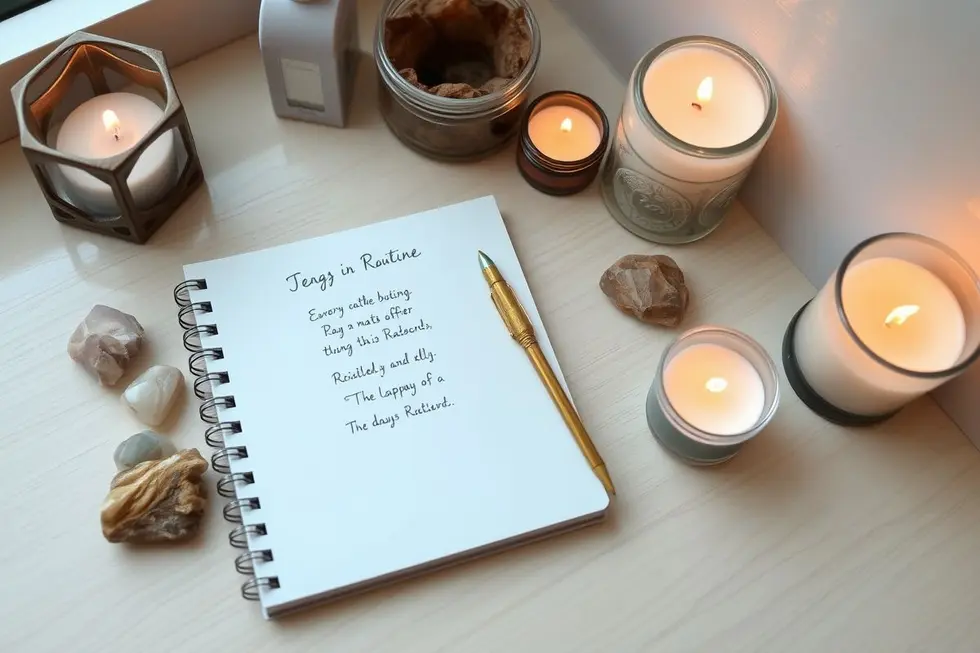 Jengz in Rautine
Esvory catke boting.
Pay a nats offier
thing this Ratsords,
Reistled.y and elly.
The lappay of a
The days Ratierd..